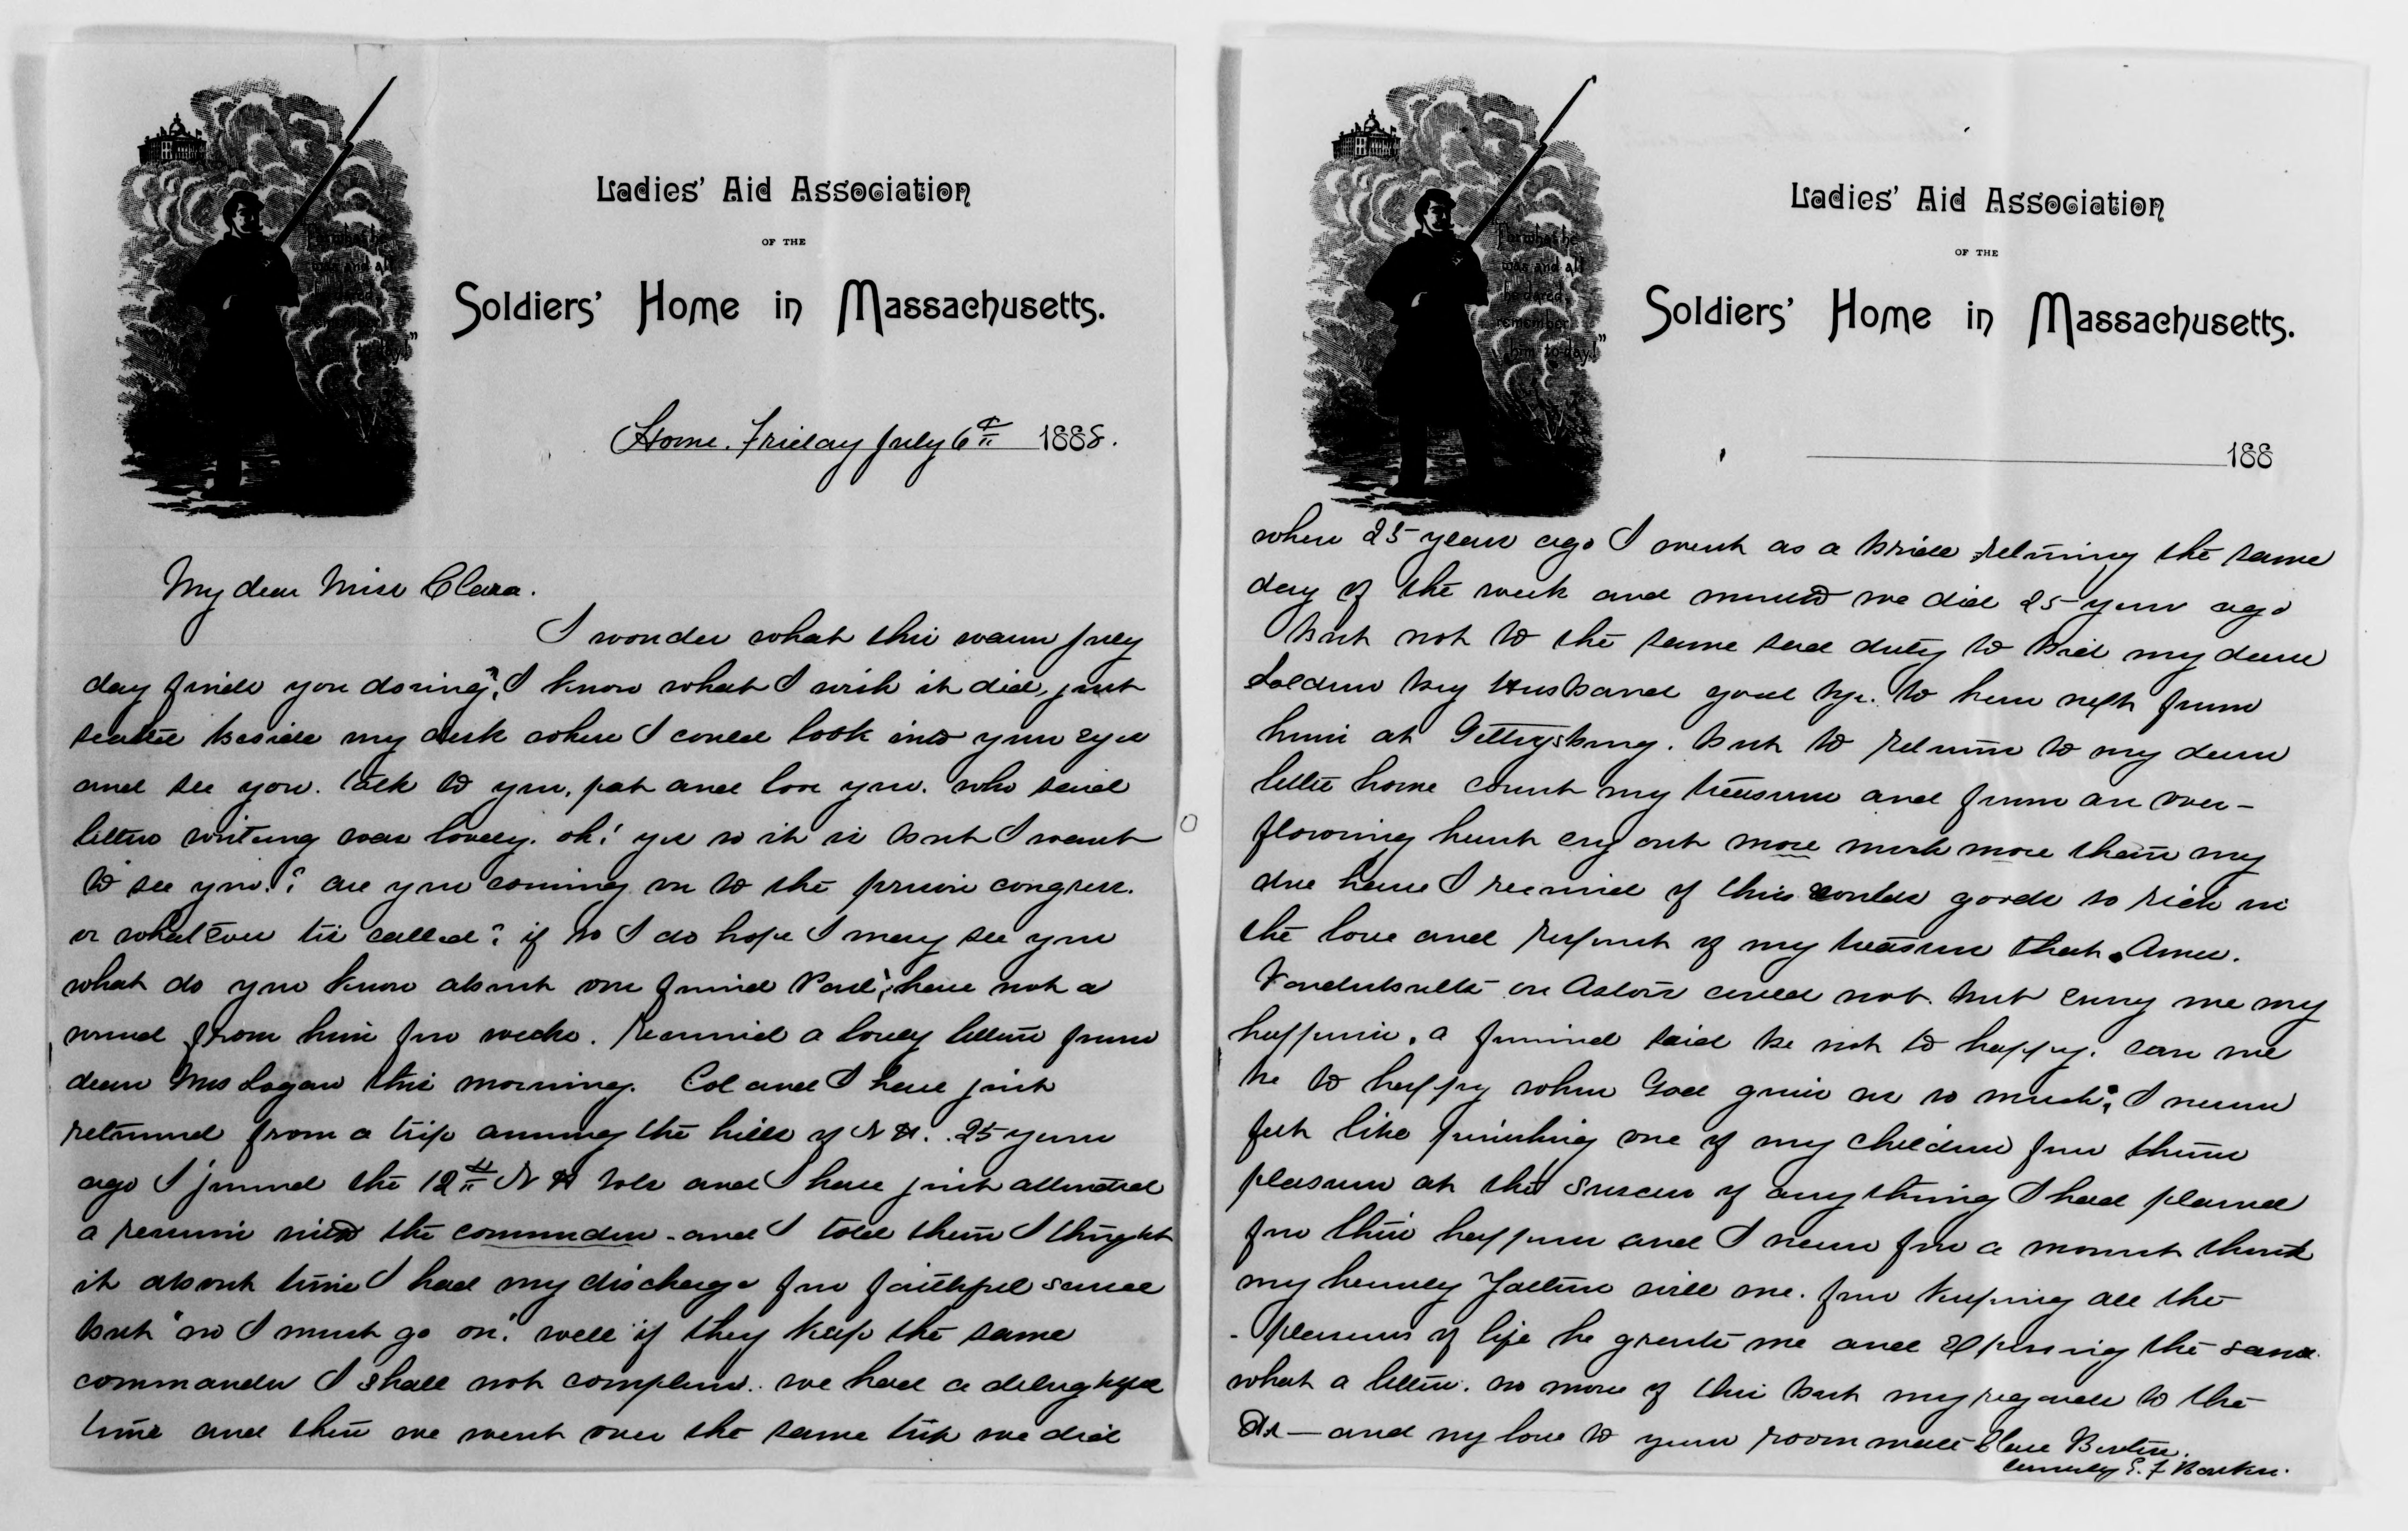 "For what he
was and all
he dared,
remember
him to-day!"
Ladies' Aid Association
OF THE
Soldiers' Home in Massachusetts.
Home. Friday July 6th 1888.
My dear Miss Clara.
I wonder what this warm July
day finds you doing? I know what I wish it did, just
seated beside my desk where I could look into your eyes
and see you. talk to you, pat and love you. who said
letter writing was lovely. oh! yes so it is but I want
to see you.! are you coming on to the prison congress.
or what ever tis called? if so I do hope I may see you
what do you know about our friend Paul? have not a
word from him for weeks. received a lovely letter from
dear Mrs Logan this morning. Col and I have just
returned from a trip among the hills of N H. 25 years
ago I joined the 12th N H Vols and I have just attended
a reunion with the comrades - and I told them I thought
it about time I had my discharge for faithful service
but "no I must go on". well if they keep the same
commander I shall not complain. we had a delightful
time and then we went over the same trip we did
"For what he
was and all
he dared,
remember
him to-day!"
Ladies' Aid Association
OF THE
Soldiers' Home in Massachusetts.
188
when 25 years ago I went as a bride returning the same
day of the week and month we did 25 years ago
but not to the same sad duty to bid my dear
Soldier boy Husband good bye. to hear next from
him at Gettysburg. but to return to my dear
little home count my treasures and from an over-
flowing heart cry out more much more than my
due have I received of this worlds goods so rich in
the love and respect of my treasures that
Vanderbilts or Astors could not but envy me my
happiness. a friend said be not to happy. can we
be to happy when God gives us so much? I never
felt like punishing one of my children for their
pleasure at the success of anything I had planed
for their happiness and I never for a moment think
my heavenly Father will me. for keeping all the
- pleasures of life he grants me and enjoying the same.
what a letter. no more of this but my regards to the
Dr - and my love to your room mate Clara Barton.
E. F. Barker.